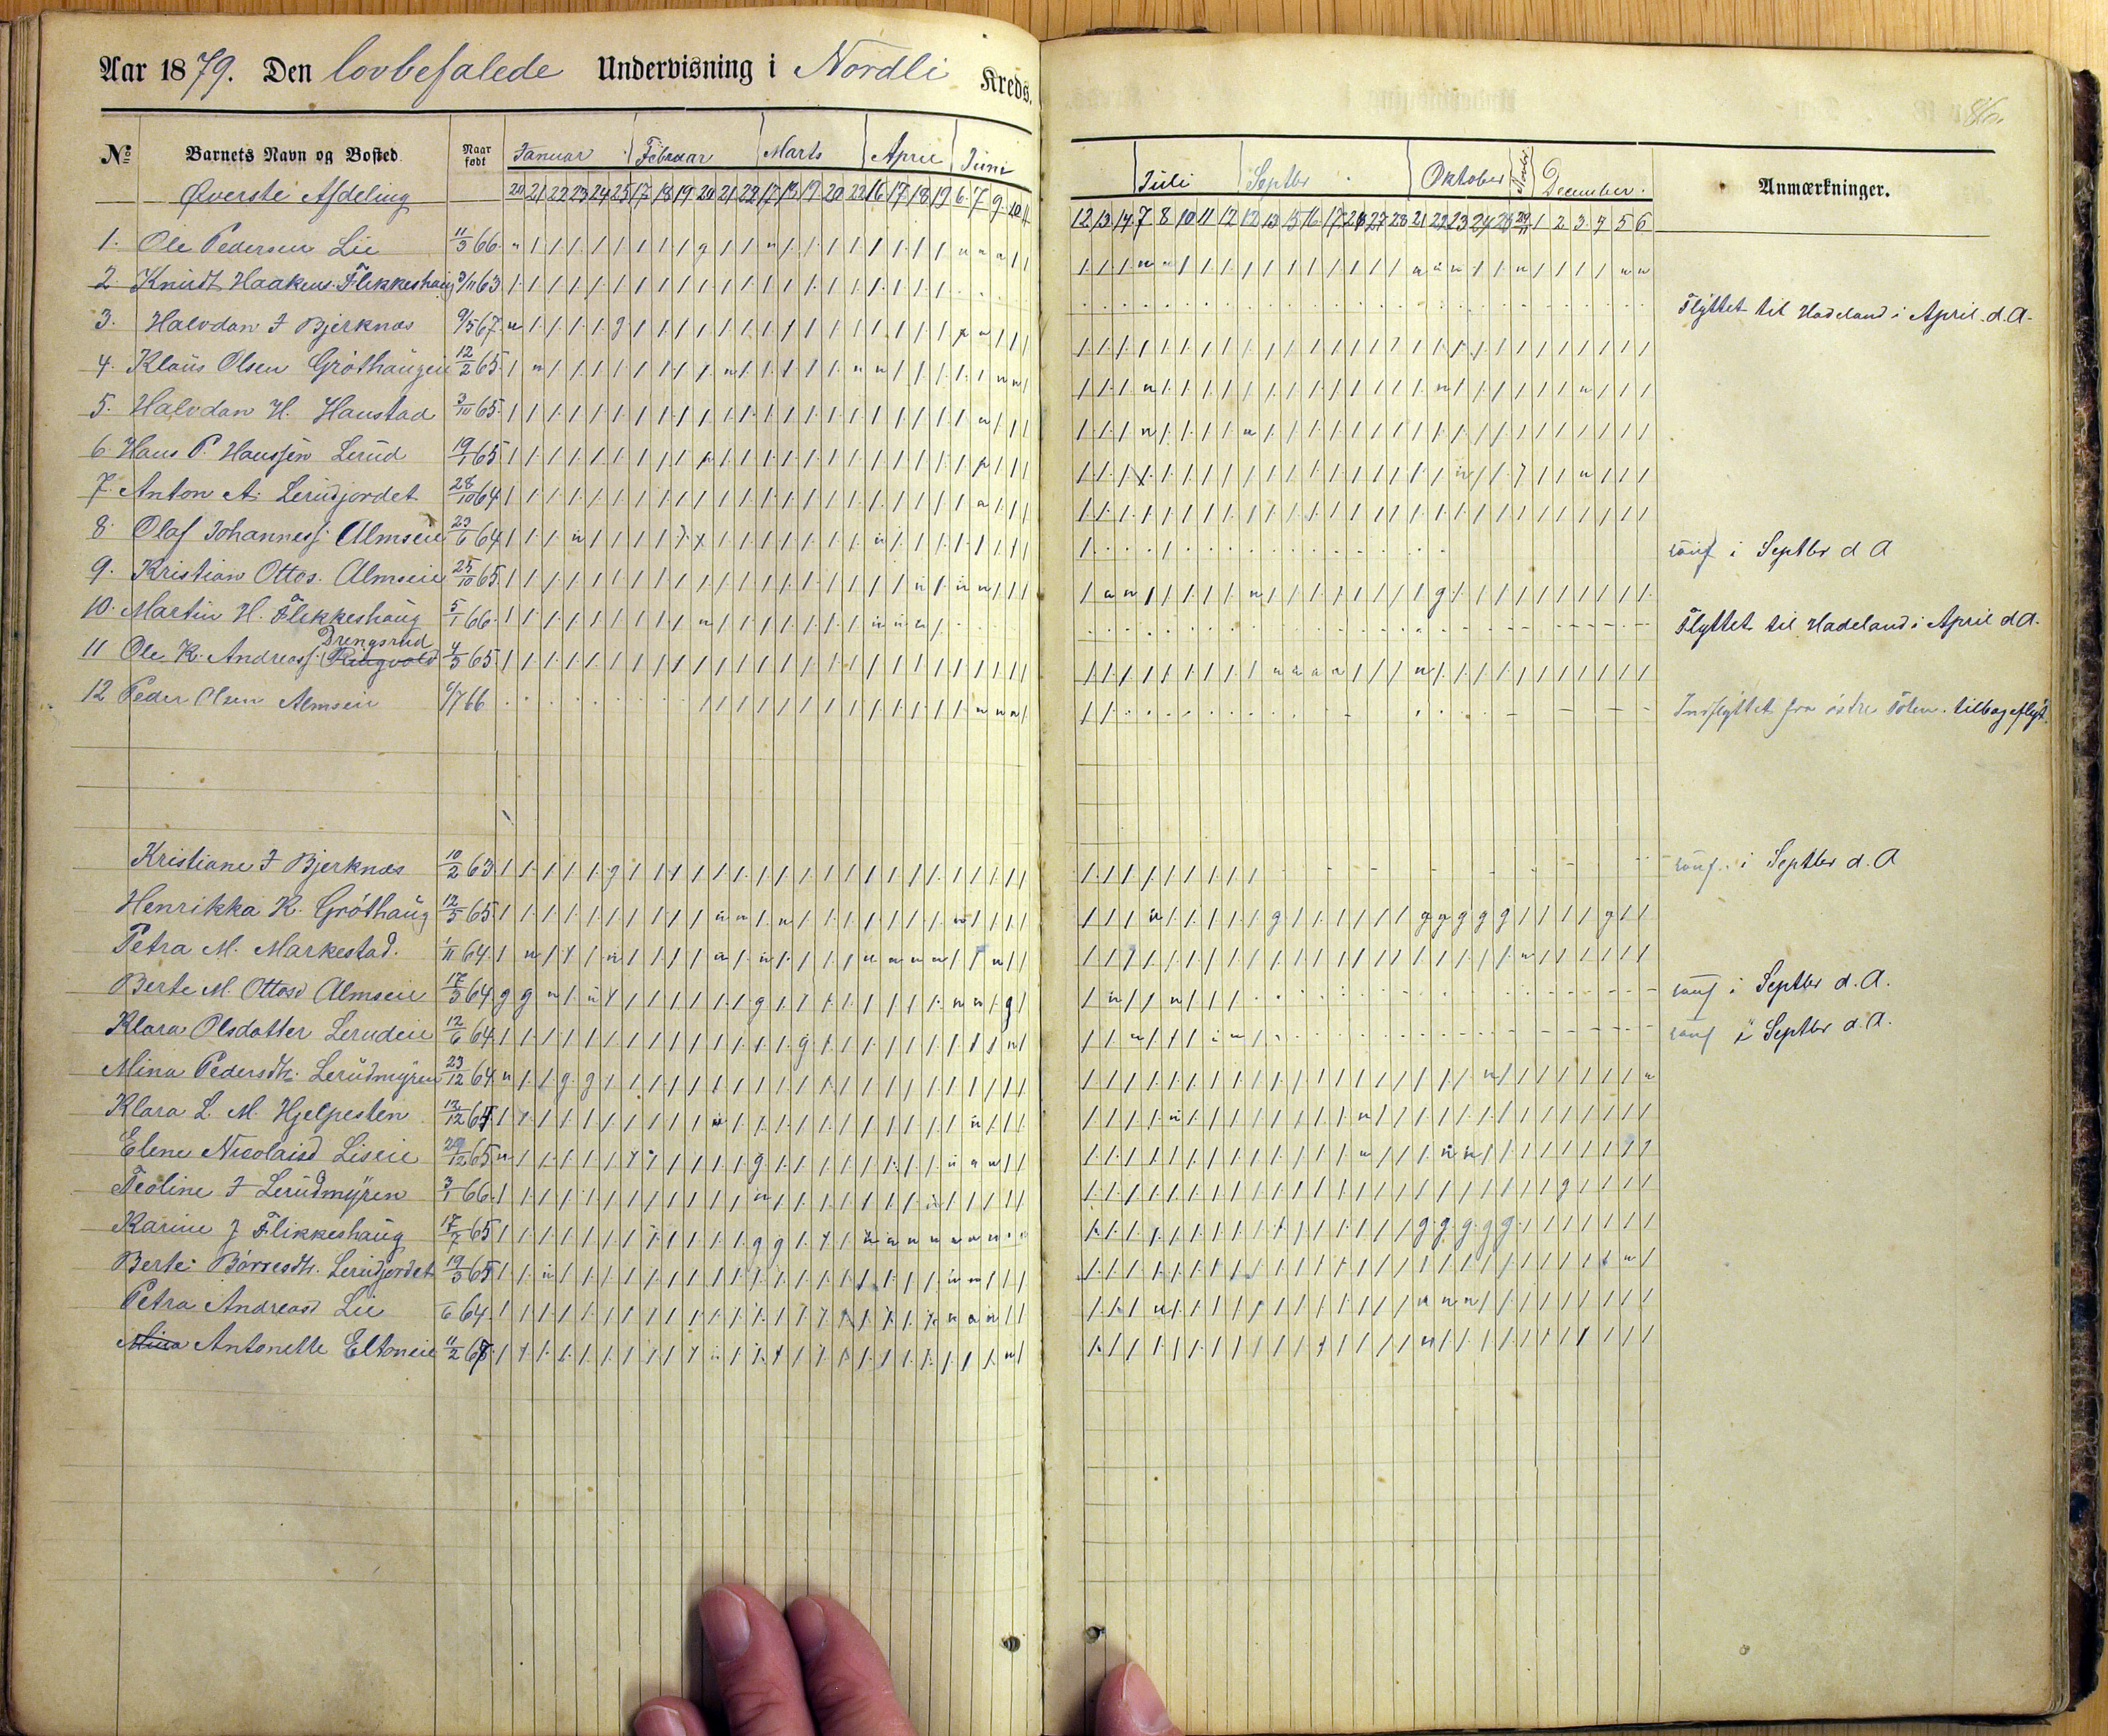 Aar 1879. Den lovbefalede Undervisning i Nordli Kreds.
86.
No Barnets Navn og Bosted. Naar født Januar Februar Marts April Juni Juli Septbr Oktober Novbr December. Anmærkninger.
Øverste Afdeling 20 21 22 23 24 25 17 18 19 20 21 22 17 18 19 20 22 16 17 18 19 6 7 9 10 11 12 13 14 7 8 10 11 12 12 13 15 16 17 26 27 28 21 22 23 24 25 29/11 1 2 3 4 5 6
1. Ole Pedersen Lie 11/3 66.
2. Knudt Haakens. Flikkeshaug 9/11 63 Flyttet til Hadeland i April d. A.
3. Halvdan J Bjerknæs 9/5 67.
4. Klaus Olsen Gróthaugen 12/2 65.
5. Halvdan H. Haustad 3/10 65.
6 Hans P. Hanssen Lerud 19/1 65
7. Anton A. Lerudjordet 28/10 64
8. Olaf Johannesf. Almseie 23/6 64 konf i Septbr d A
9. Kristian Ottos. Almseie 25/10 65.
10. Martin H. Flikkeshaug 5/1 66. Flyttet til Hadeland i April d A.
Drengsrud
11 Ole K. Andreasf. Ringvold 4/3 65
12 Peder Olsen Almseie 6/7 66 Indflyttet fra østre Toten. tilbageflyt.
Kristiane J Bjerknæs 10/2 63 konf. i Septbr d. A
Henrikka K. Gróthaug 12/5 65
Petra M. Markestad. 1/11 64.
Berte M. Ottosd Almseie 17/3 64 konf i Septbr d. A.
Klara Olsdatter Lerudeie 12/6 64 konf i Septbr d. A.
Mina Pedersdtr. Lerudmyren 23/12 64
Klara L. M. Hjelpesten 12/12 64
Elene Nicolaisd Liseie 29/12 65
Teoline J Lerudmyren 3/1 66.
Karine J Flikkeshaug 17/7 65
Berte Børresdtr. Lerudjordet 19/3 65
Petra Andreasd Lie 6 64.
Mina Antonette Eltoneie 11/2 67